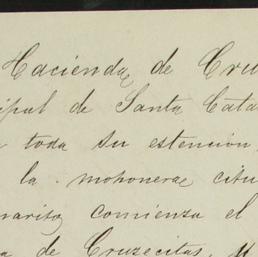 Hacienda de Cru
ipal de Santa Cata
toda su estencion
la mohonera citu
comienza el
de Cruzecitas,